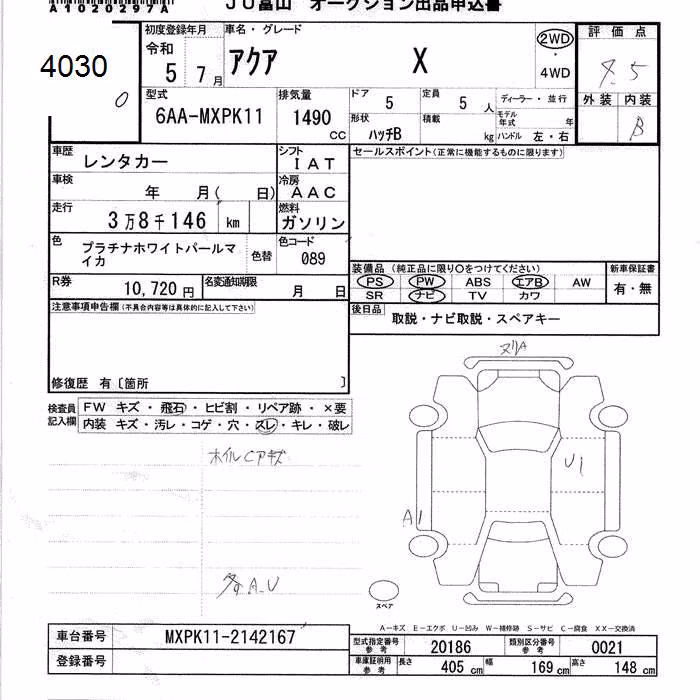 A1020297A
JU富山 オークション出品申込書
4030
0
初度登録年月
令和
5 7月
車名・グレード
アクア X
2WD
・
4WD
評価点
4.5
外装 内装
B
型式
6AA-MXPK11
排気量
1490 CC
ドア 5
定員 5 人
形状 ハッチB
積載 kg
ディーラー・並行
モデル年式 年
ハンドル 左・右
車歴 レンタカー
シフト IAT
セールスポイント(正常に機能するものに限ります)
車検 年 月( 日)
冷房 AAC
走行 3万8千146 km
燃料 ガソリン
色 プラチナホワイトパールマイカ
色替
色コード 089
R券 10,720円
名変通知期限 月 日
装備品 (純正品に限り○をつけてください)
PS PW ABS エアB AW
SR ナビ TV カワ
新車保証書
有・無
注意事項申告欄(不具合内容等は具体的に記入して下さい)
後日品 取説・ナビ取説・スペアキー
修復歴 有〔箇所 〕
検査員記入欄
FW キズ・飛石・ヒビ割・リペア跡・×要
内装 キズ・汚レ・コゲ・穴・スレ・キレ・破レ
ホイルCアキズ
各A.U
ヌリA
U1
A1
スペア
A-キズ E-エクボ U-凹み W-補修跡 S-サビ C-腐食 XX-交換済
車台番号 MXPK11-2142167
登録番号
型式指定番号参考 20186
類別区分番号参考 0021
車庫証明用参考 長さ 405 cm 幅 169 cm 高さ 148 cm